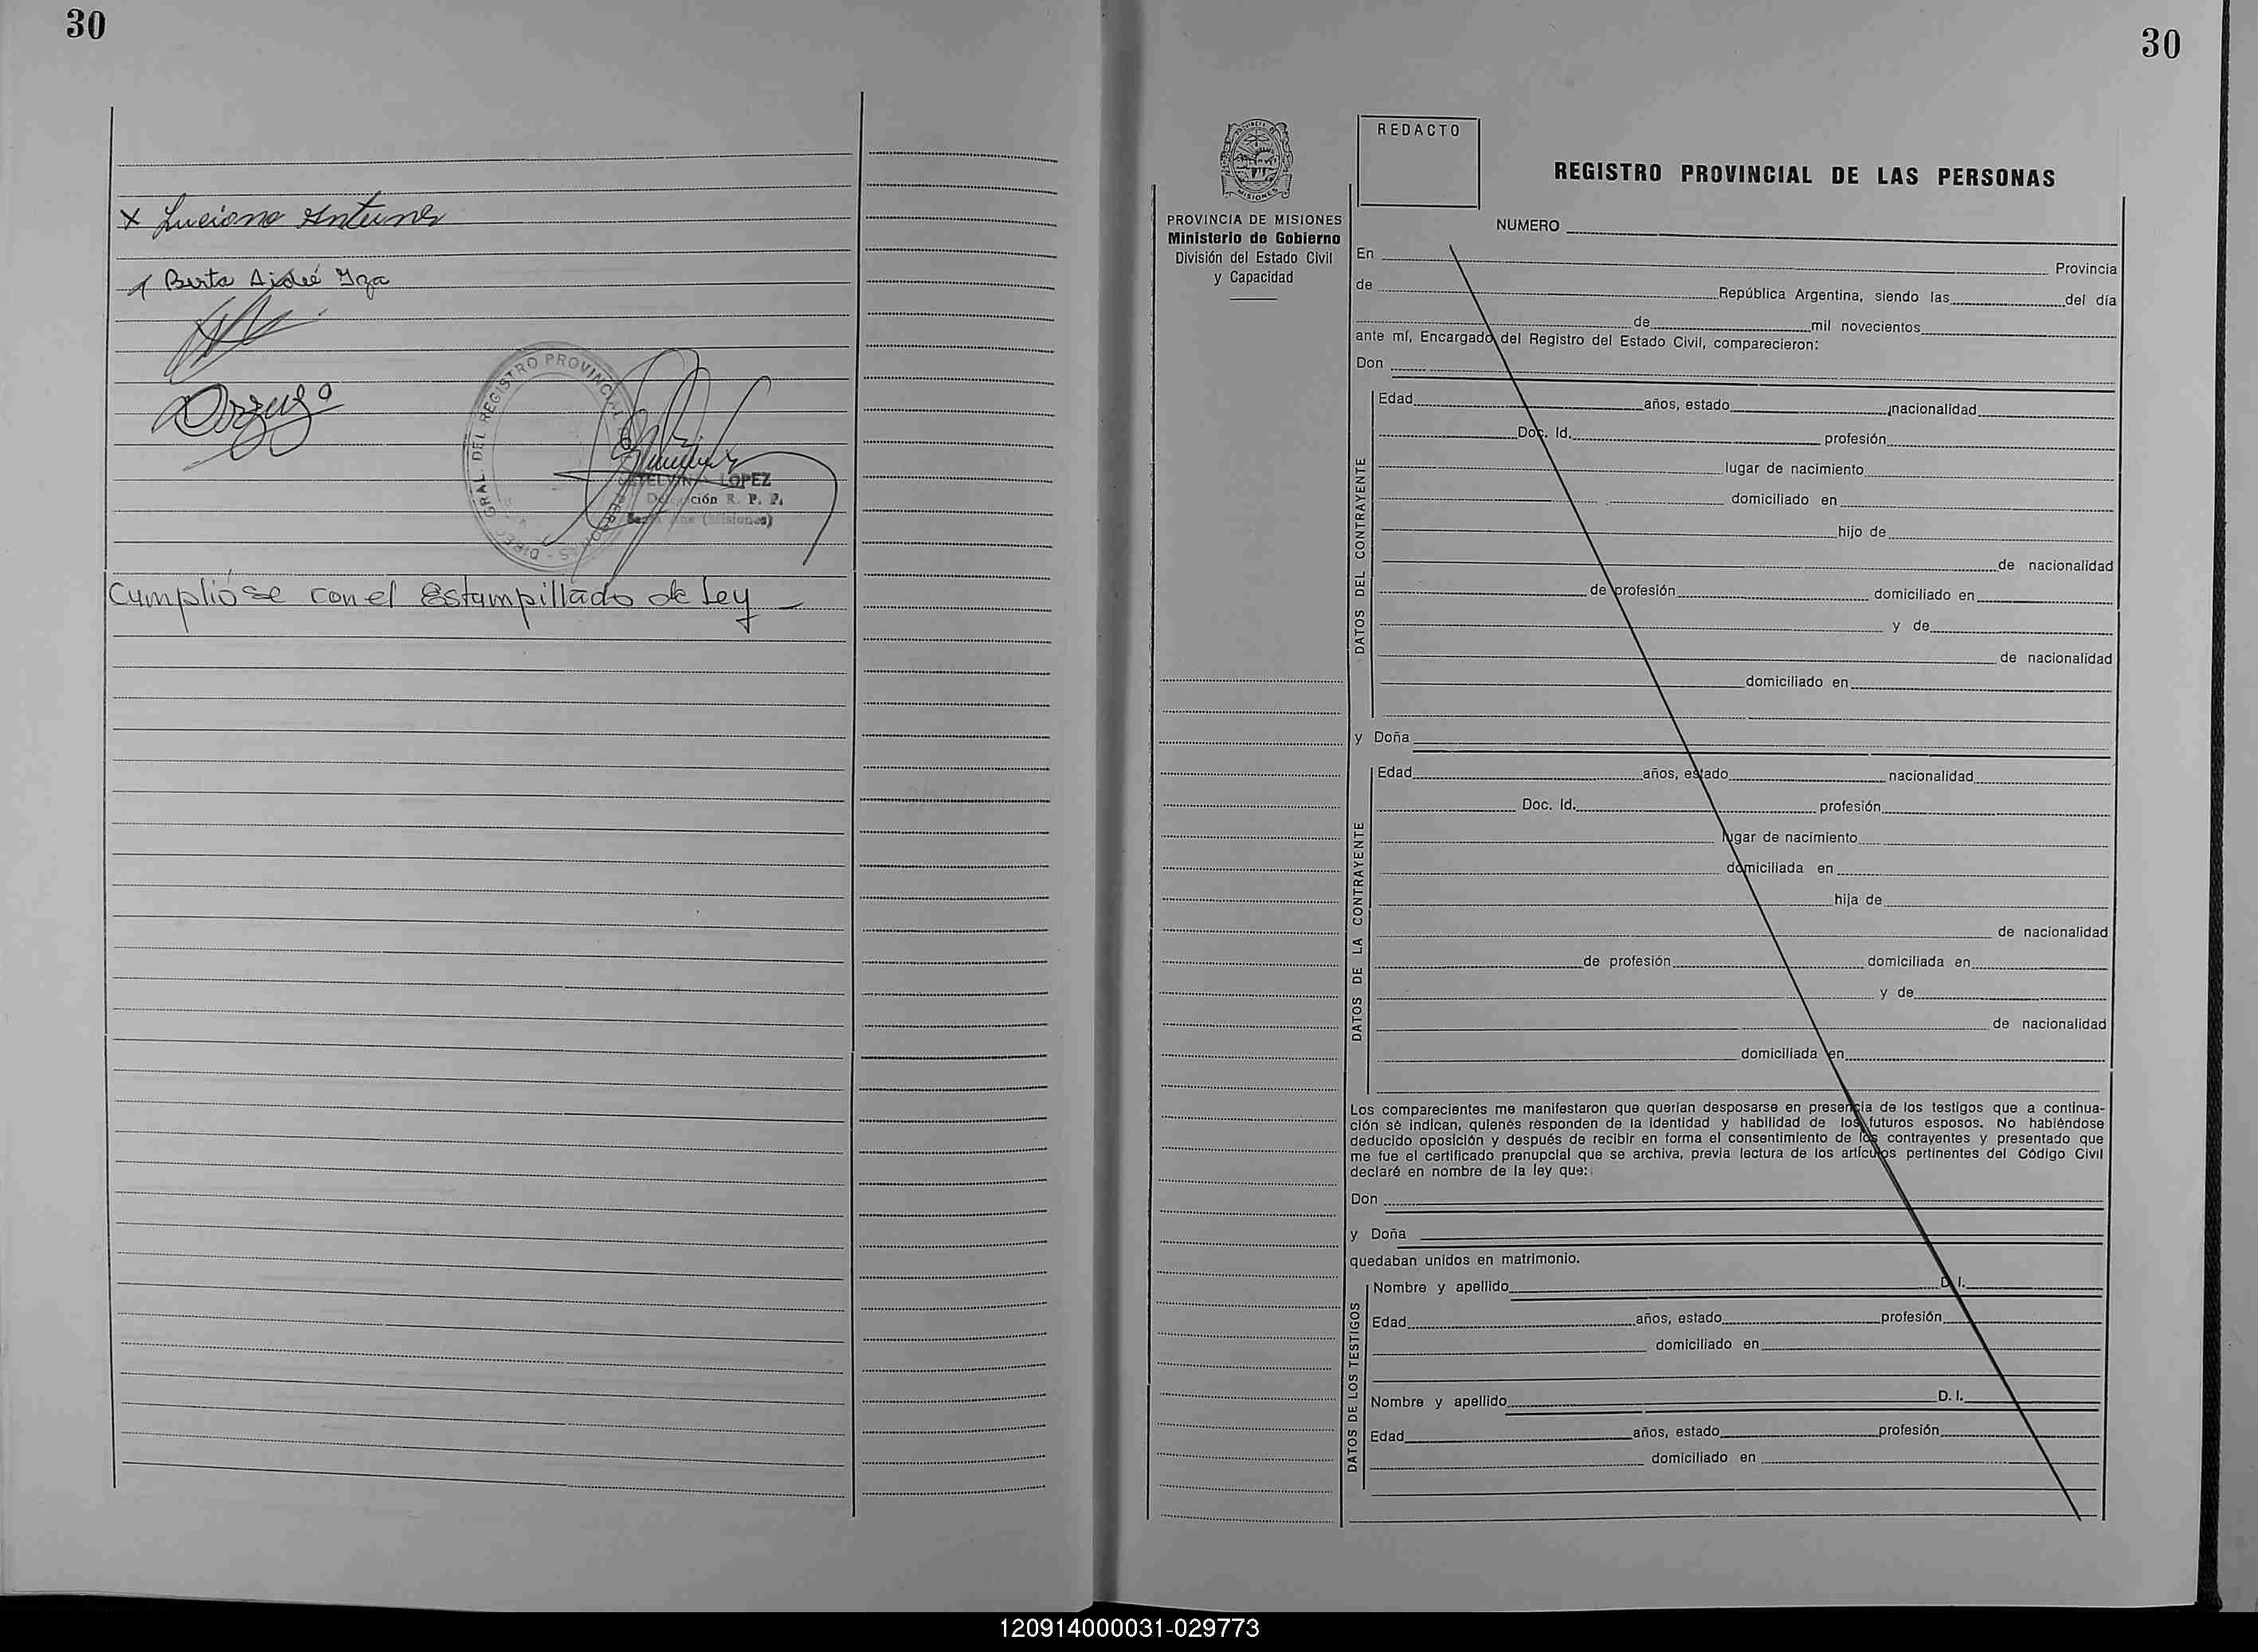 30
× Luciano Antunes
Berta Aidé Iza
Arzuga
DIREC. GRAL. DEL REGISTRO PROVINCIAL DE PERSONAS
LOPEZ
ción R. P. P.
(Misiones)
Cumplióse con el Estampillado de Ley —
30
PROVINCIA DE MISIONES
Ministerio de Gobierno
División del Estado Civil
y Capacidad
REDACTO
REGISTRO PROVINCIAL DE LAS PERSONAS
NUMERO
En Provincia
de República Argentina, siendo las del día
de mil novecientos
ante mí, Encargado del Registro del Estado Civil, comparecieron:
Don
DATOS DEL CONTRAYENTE
Edad años, estado nacionalidad
Doc. Id. profesión
lugar de nacimiento
domiciliado en
hijo de
de nacionalidad
de profesión domiciliado en
y de
de nacionalidad
domiciliado en
y Doña
DATOS DE LA CONTRAYENTE
Edad años, estado nacionalidad
Doc. Id. profesión
lugar de nacimiento
domiciliada en
hija de
de nacionalidad
de profesión domiciliada en
y de
de nacionalidad
domiciliada en
Los comparecientes me manifestaron que querían desposarse en presencia de los testigos que a continua-
ción se indican, quienes responden de la identidad y habilidad de los futuros esposos. No habiéndose
deducido oposición y después de recibir en forma el consentimiento de los contrayentes y presentado que
me fue el certificado prenupcial que se archiva, previa lectura de los artículos pertinentes del Código Civil
declaré en nombre de la ley que:
Don
y Doña
quedaban unidos en matrimonio.
DATOS DE LOS TESTIGOS
Nombre y apellido D. I.
Edad años, estado profesión
domiciliado en
Nombre y apellido D. I.
Edad años, estado profesión
domiciliado en
120914000031-029773